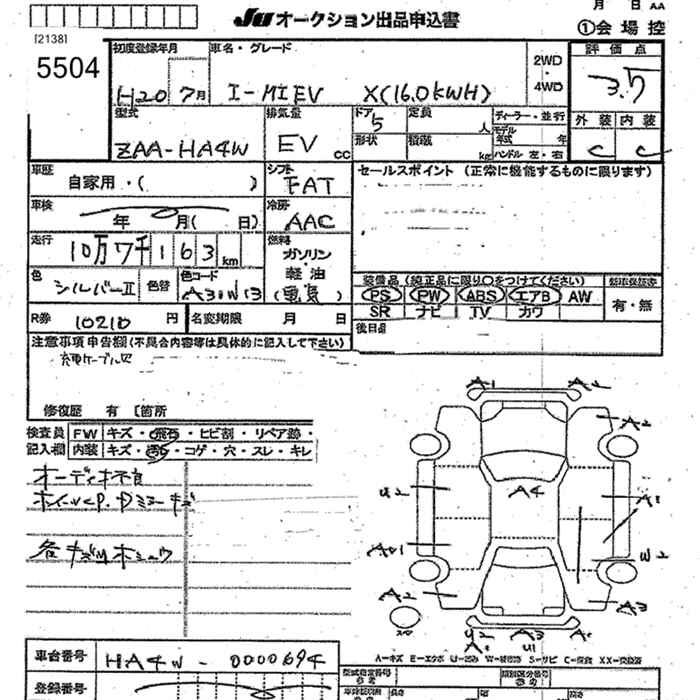 月 日 AA
JU オークション出品申込書
①会場控
[2138]
5504
初度登録年月 車名・グレード 2WD・4WD 評価点
H20 7月 I-MIEV X(16.0kWH) 3.5
型式 排気量 ドア 定員 人 ディーラー・並行 外装 内装
ZAA-HA4W EV cc 5 形状 積載 kg モデル年式 年 ハンドル 左・右 C C
車歴 自家用・( ) シフト FAT セールスポイント (正常に機能するものに限ります)
車検 年 月( 日) 冷房 AAC
走行 10万7千163km 燃料 ガソリン・軽油(電気)
色 シルバーII 色替 色コード A30W13
装備品 (純正品に限り○をつけてください)
PS PW ABS エアB AW 有・無
SR ナビ TV カワ
R券 10210円 名変期限 月 日 後日品
注意事項申告欄(不具合内容等は具体的に記入して下さい)
充電ケーブル
修復歴 有 [箇所
検査員 FW キズ・飛石・ヒビ割・リペア跡・
記入欄 内装 キズ・汚れ・コゲ・穴・スレ・キレ
オーディオ不良
A1 A2
A2
U2 A4 A1
W2
A2 A3
スペア
U2 A3
U1
A=キズ E=エクボ U=凹み W=補修跡 S=サビ C=腐食 XX=交換済
車台番号 HA4W-0000694
登録番号